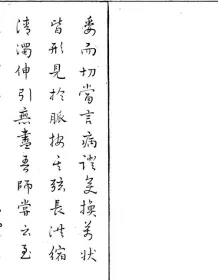 委而切當言病證變換萬狀
皆形見於脈按其弦長洪縮
清濁伸引無盡吾師嘗云至